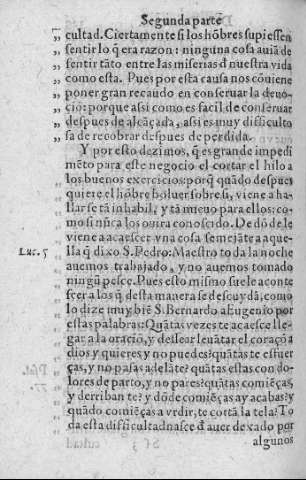 Segunda parte
„ cultad. Ciertamente si los hōbres supiessen
„ sentir lo q̄ era razon: ninguna cosa auiā de
„ sentir tāto entre las miserias d̄ nuestra vida
„ como esta. Pues por esta causa nos cōuiene
„ poner gran recaudo en conseruar la deuo-
„ cio: porque assi como es facil de conseruar
„ despues de alcāçada, assi es muy difficulto
„ sa de recobrar despues de perdida.
Y por esto dezimos, q̄ es grande impedi
mēto para este negocio el cortar el hilo a
los buenos exercicios: porq̄ quādo despues
quiere el hōbre boluer sobre si, viene a ha-
llarse tā inhabil, y tā nueuo para ellos: co-
mo si nūca los ouira conoscido. De dōde le
viene a acaescer vna cosa semejāte a aque-
Luc. 5 lla q̄ dixo S. Pedro: Maestro toda la noche
auemos trabajado, y no auemos tomado
ningū pesce. Pues esto mismo suele aconte
scer a los q̄ desta manera se descuydā; como
lo dize muy biē S. Bernardo a Eugenio por
estas palabras: Quātas vezes te acaesce lle-
gar a la oració, y dessear leuātar el coraçō a
dios y quieres y no puedes? quātas te esfuer
ças, y no passas adelāte? quātas estas con do-
lores de parto, y no pares? quātas comiēças,
y derriban te? y dōde comiēças ay acabas? y
quādo comiēças a vrdir, te cortā la tela? To
da esta difficultad nasce d̄ auer dexado por
algunos